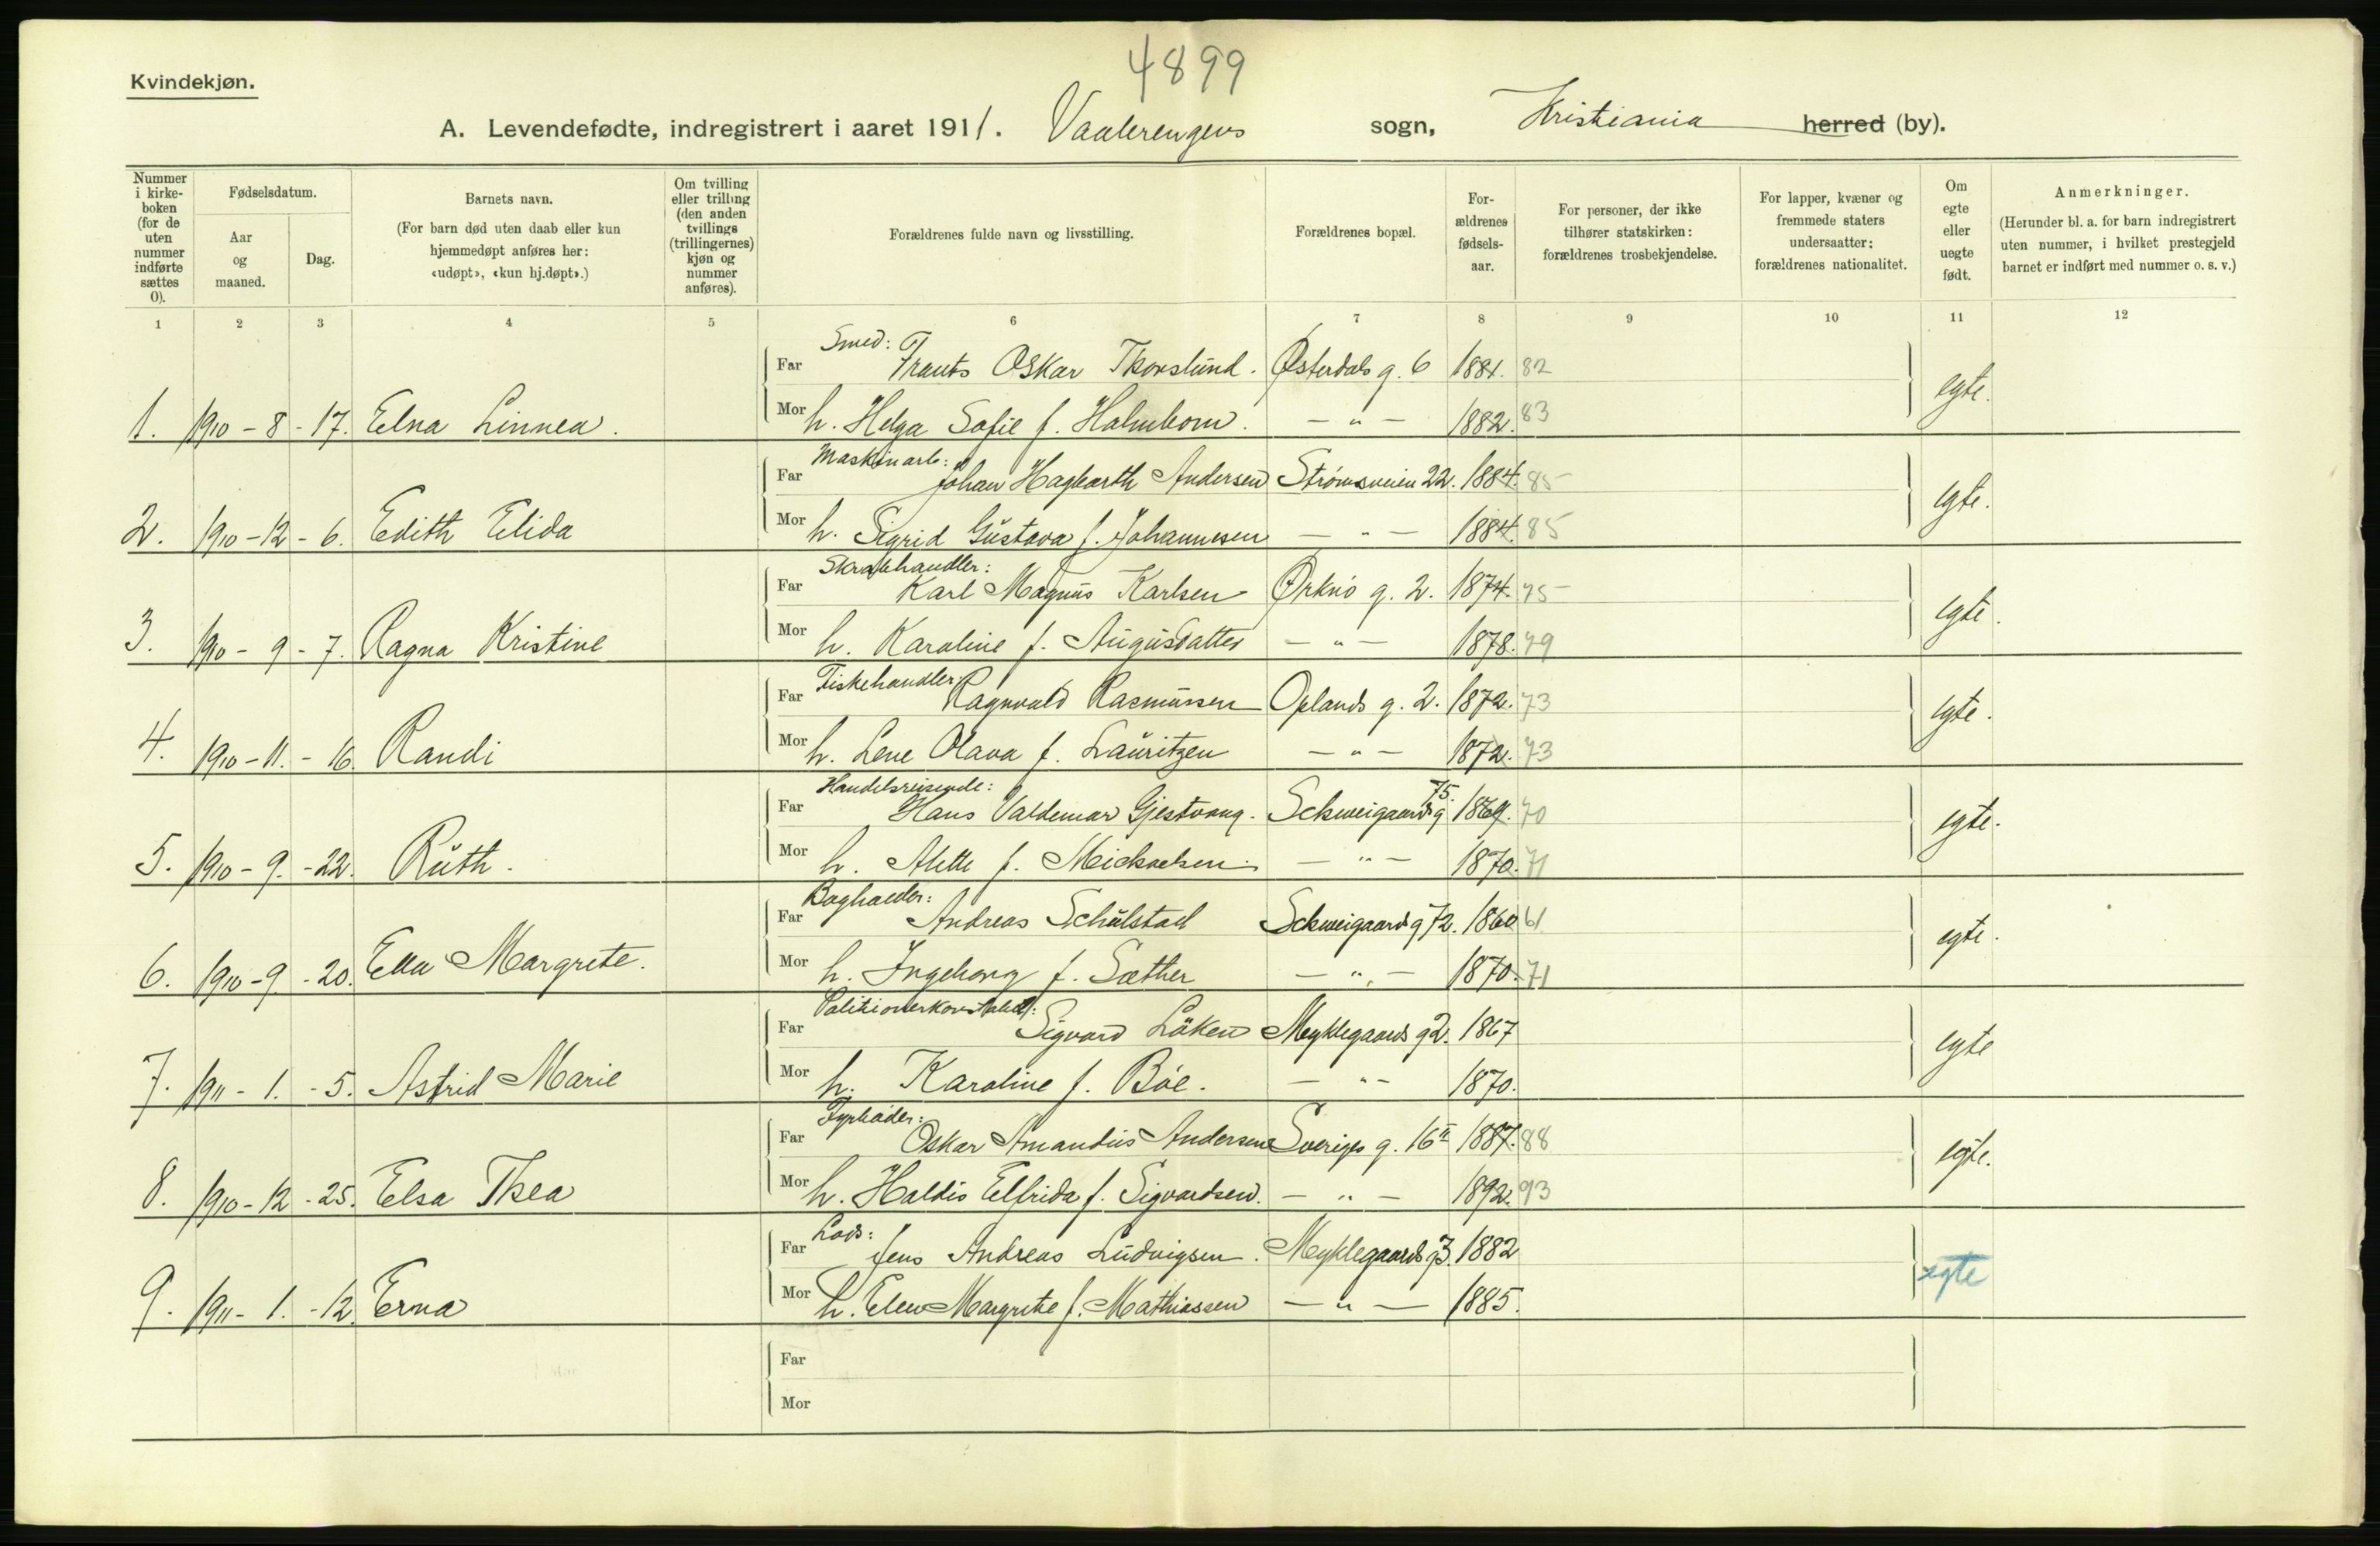 4899
Kvindekjøn.
A. Levendefødte, indregistrert i aaret 1911. Vaalerengens sogn, Kristiania herred (by).
Nummer i kirkeboken (for de uten nummer indførte sættes 0).
Fødselsdatum.
Aar og maaned.
Dag.
Barnets navn.
(For barn død uten daab eller kun hjemmedøpt anføres her: «udøpt», «kun hj.døpt».)
Om tvilling eller trilling (den anden tvillings (trillingernes) kjøn og nummer anføres).
Forældrenes fulde navn og livsstilling.
Forældrenes bopæl.
Forældrenes fødselsaar.
For personer, der ikke tilhører statskirken: forældrenes trosbekjendelse.
For lapper, kvæner og fremmede staters undersaatter: forældrenes nationalitet.
Om egte eller uegte født.
Anmerkninger.
(Herunder bl. a. for barn indregistrert uten nummer, i hvilket prestegjeld barnet er indført med nummer o. s. v.)
1 2 3 4 5 6 7 8 9 10 11 12
Smed:
Far Frants Oskar Thorslund. Østerdals g. 6 1881. 82
1. 1910-8-17. Elna Linnea. Mor h. Helga Sofie f. Holmbom. — " — 1882. 83 egte.
Maskinarb:
Far Johan Hagbarth Andersen Strømsveien 22. 1884. 85
2. 1910-12-6. Edith Elida Mor h. Sigrid Gustava f. Johannesen — " — 1884. 85 egte.
Skraphandler:
Far Karl Magnus Karlsen Orknø g. 2. 1874. 75
3. 1910-9-7. Ragna Kristine Mor h. Karoline f. Augusdatter — " — 1878. 79 egte.
Fiskehandler:
Far Ragnvald Rasmussen Oplands g. 2. 1872. 73
4. 1910-11.-16. Randi Mor h. Lene Olava f. Lauritzen — " — 1872. 73 egte.
Handelsreisende:
Far Hans Valdemar Gjestvang. Schweigaards g 75. 1869. 70
5. 1910-9.-22. Ruth. Mor h. Alette f. Michaelsen. — " — 1870. 71 egte.
Boghalder:
Far Andreas Schulstad Schweigaards g 72. 1860 61
6. 1910-9-20. Ella Margrete. Mor h. Ingeborg f. Sæther — " — 1870. 71 egte.
Far Sigvard Løken Myklegaards g 2. 1867
7. 1911-1.-5. Astrid Marie Mor h. Karoline f. Bøe. — " — 1870. egte
Fyrbøder:
Far Oskar Amandus Andersen Sveriges g. 16 II 1887. 88
8. 1910-12-25. Elsa Thea Mor h. Haldis Elfrida f. Sigvardsen. — " — 1892. 93 egte.
Lods:
Far Jens Andreas Ludvigsen. Myklegaards g 3. 1882
9. 1911-1.-12. Erna Mor h. Elen Margrete f. Mathiassen — " — 1885. egte
Far
Mor